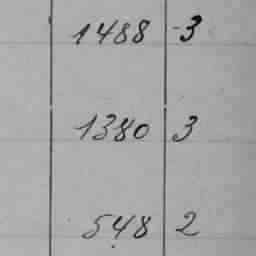 1488 3
1380 3
548 2